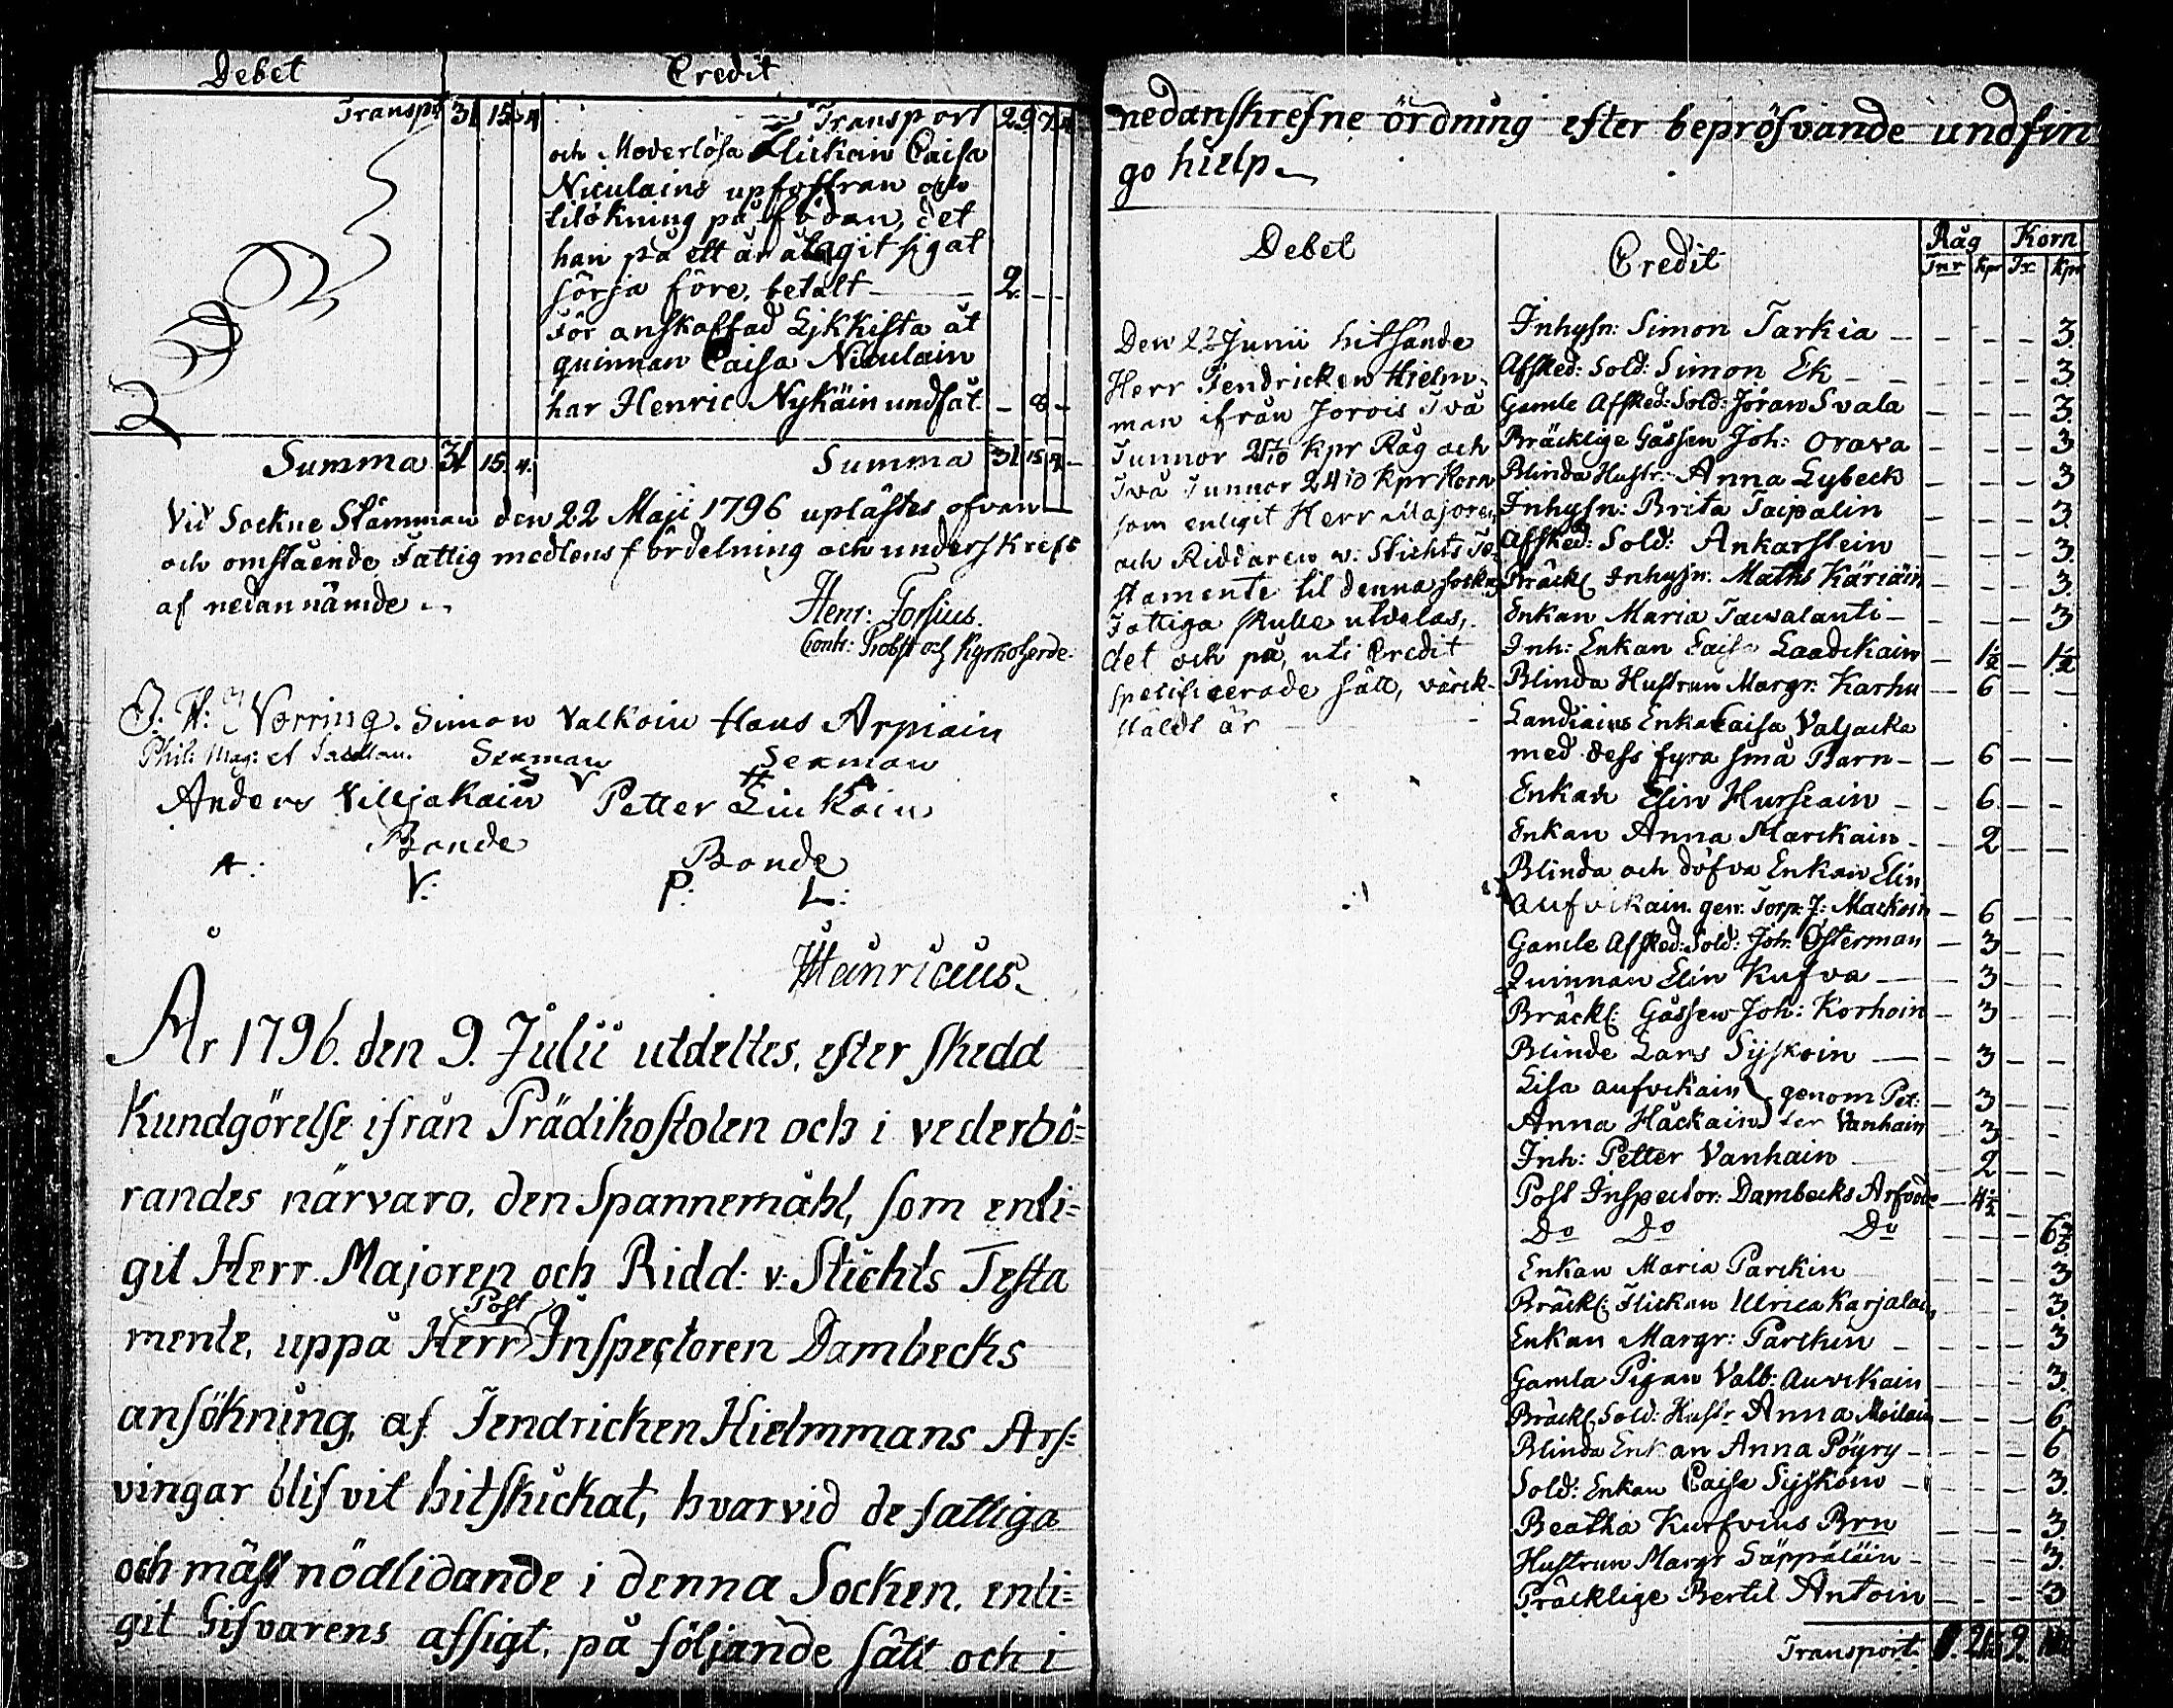 Debet Credit
Transp: 31 15 4
Transport 29 7 4
och Moderlösa Flickain Caisa
Niculains upfostran och
tilökning på födan, det
han på ett år åtagit sig at
sörja före, betalt 2. - -
För anskaffad Likkista åt
quinnan Caisa Niculain
har Henric Nykäin undfåt. - 8 -
Summa 31 15. 4. Summa 31 15 4
Vid Sockne Stämman den 22 Maji 1796 uplästes ofvan
och omstående Fattig medlens fördelning och underskrefs
af nedannämde..
Henr: Fossius.
Contr: Probst och Kyrkoherde.
J. H: Norring. Simon Valkoin Hans Arpiain
Phil: Mag: et Sacellan. Sexman Sexman
S V H A
Anders Viljakain Petter Liukoin
Bonde Bonde
A: V: P: L:
Hänricuus.
År 1796. den 9. Julii utdeltes, efter skedd
Kundgörelse ifrån Prädikostolen och i vederbö=
randes närvaro, den Spannemåhl, som enli=
git Herr Majoren och Ridd: v: Stichts Testa
mente, uppå Herr Post Inspectoren Dambecks
ansökning, af Fendricken Hielmmans Arf=
vingar blifvit hitskickat, hvarvid de fattiga
och mäst nödlidande i denna Socken, enli=
git Gifvarens afsigt, på följande sätt och i
nedanskrefne ördning efter beprösvande undfin
go hielp.
Debet Credit Råg Korn
Tnr Kpr Tr Kpr
Den 22 Junii hitsände
Herr Fendricken Hielm-
man ifrån Jorois Två
Tunnor Kpr Råg och
Två Tunnor 24 10 Kpr Korn
som enligit Herr Majoren
och Riddaren v: Stichts Te-
stamente til denna Sockn
Fattiga skulle utdelas,
det och på, uti Credit
specificerade sätt, värck-
stäldt är
Inhysn: Simon Tarkia - - - 3.
Afsked: Sold: Simon Ek - - - 3.
Gamle Afsked: Sold: Jöran Svala - - - 3.
Bräcklige Gåssen Joh: Orava - - - 3
Blinda Hustr: Anna Lybeck - - - 3
Inhysn: Brita Taipalin - - - 3.
Afsked: Sold: Ankarstein - - - 3.
Bräckl Inhysn: Maths Käriäin - - - 3.
Enkan Maria Taivalanti - - - 3
Inh: Enkan Caisa Laadikain - 1½ - 1½
Blinda Hustrun Margr: Karhu - 6 - -
Landiains Enka Caisa Valjacka
med dess fyra små Barn - - 6 - -
Enkan Elin Hurskain - - 6 - -
Enkan Anna Marckain - - 2 - -
Blinda och döfva Enkan Elin
Aufvikain. gen: Torp: J: Mackoin - 6 - -
Gamle Afsked: Sold: Joh: Österman - 3 - -
Quinnan Elin Kufva - 3 - -
Bräckl: Gåssen Joh: Korhoin - 3 - -
Blinde Lars Sijskoin - 3 - -
Lisa aufvikain genom Pet: - 3 - -
Anna Häckain ter Vanhain 3 - -
Inh: Petter Vanhain 2 - -
Post Inspector: Dambecks Arfvode - 4½ -
Do Do Do - - - 6½
Enkan Maria Parckin - - - 3
Bräckl: Flickan Ulrica Karjalain - - - 3.
Enkan Margr: Parckin - - - 3
Gamla Pigan Valb: Auvikain - - - 3.
Bräckl Sold: Hustr Anna Moilain - - - 6
Blinda Enkan Anna Pöyry - - - 6
Sold: Enkan Caisa Sijskoin - - - 3.
Beatha Kurfvins Brn - - - 3.
Hustrun Margr Säppäläin - - - 3.
Präcklige Bertil Antoin - - - 3
Transport. 2